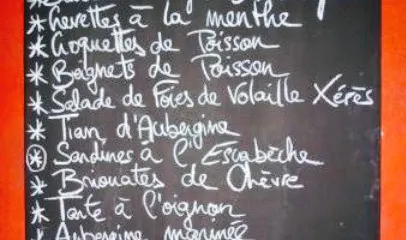 * Crevettes à la menthe
* Croquettes de Poisson
* Beignets de Poisson
* Salade de Foies de Volaille Xérès
* Tian d'Aubergine
* Sardines à l'Escabèche
* Briouates de Chèvre
* Tarte à l'oignon
* Aubergine marinée